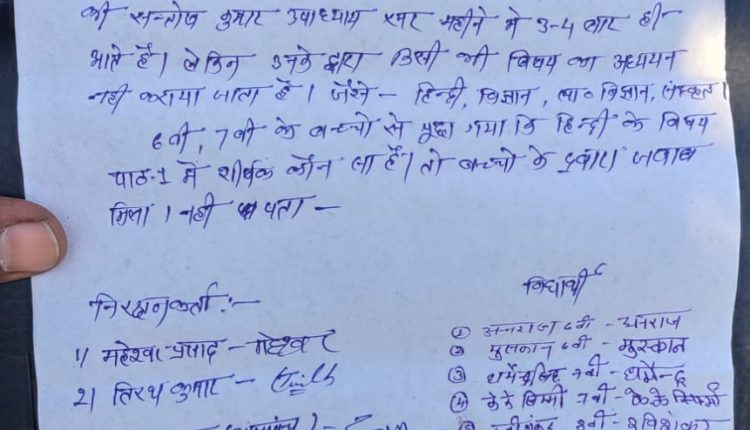 की सन्तोष कुमार उपाध्याय सर महीने में 3-4 बार ही
आते हैं। लेकिन उनके द्वारा किसी भी विषय का अध्ययन
नहीं कराया जाता है। जैसे - हिन्दी, विज्ञान, सा० विज्ञान, संस्कृत।
6वी, 7वी के बच्चो से पुछा गया कि हिन्दी के विषय
पाठ-1 में शीर्षक कौन सा है। तो बच्चो के द्वारा जवाब
मिला। नही पता -
निरक्षणकर्ता :-
1) महेश्वर प्रसाद - महेश्वर
2) तिरथ कुमार -
विद्यार्थी
① अनराज 6वी - अनराज
② मुस्कान 6वी - मुस्कान
③ धर्मेन्द्र 7वी - धर्मेन्द्र
④ 7वी -
8वी - रविशंकर